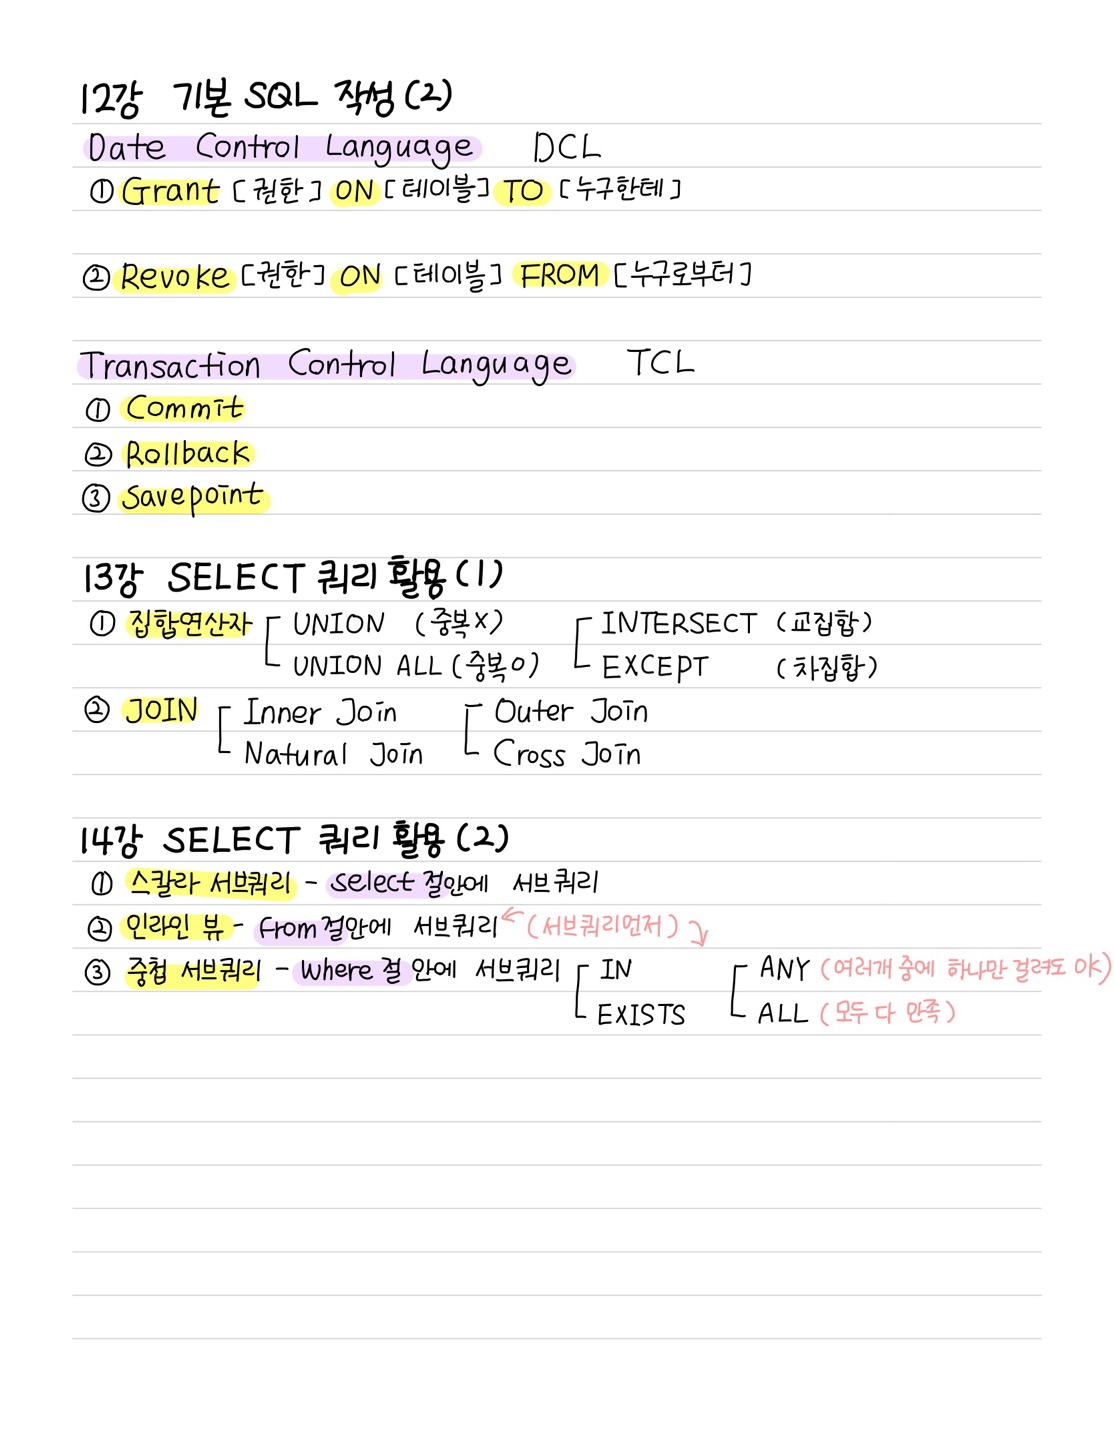 12강 기본 SQL 작성(2)
Date Control Language DCL
① Grant [권한] ON [테이블] TO [누구한테]
② Revoke [권한] ON [테이블] FROM [누구로부터]
Transaction Control Language TCL
① Commit
② Rollback
③ Savepoint
13강 SELECT 쿼리 활용(1)
① 집합연산자 UNION (중복X) INTERSECT (교집합)
UNION ALL (중복O) EXCEPT (차집합)
② JOIN Inner Join Outer Join
Natural Join Cross Join
14강 SELECT 쿼리 활용(2)
① 스칼라 서브쿼리 - select 절안에 서브쿼리
② 인라인 뷰 - From 절안에 서브쿼리 (서브쿼리먼저)
③ 중첩 서브쿼리 - Where 절 안에 서브쿼리 IN ANY (여러개 중에 하나만 걸려도 OK)
EXISTS ALL (모두 다 만족)